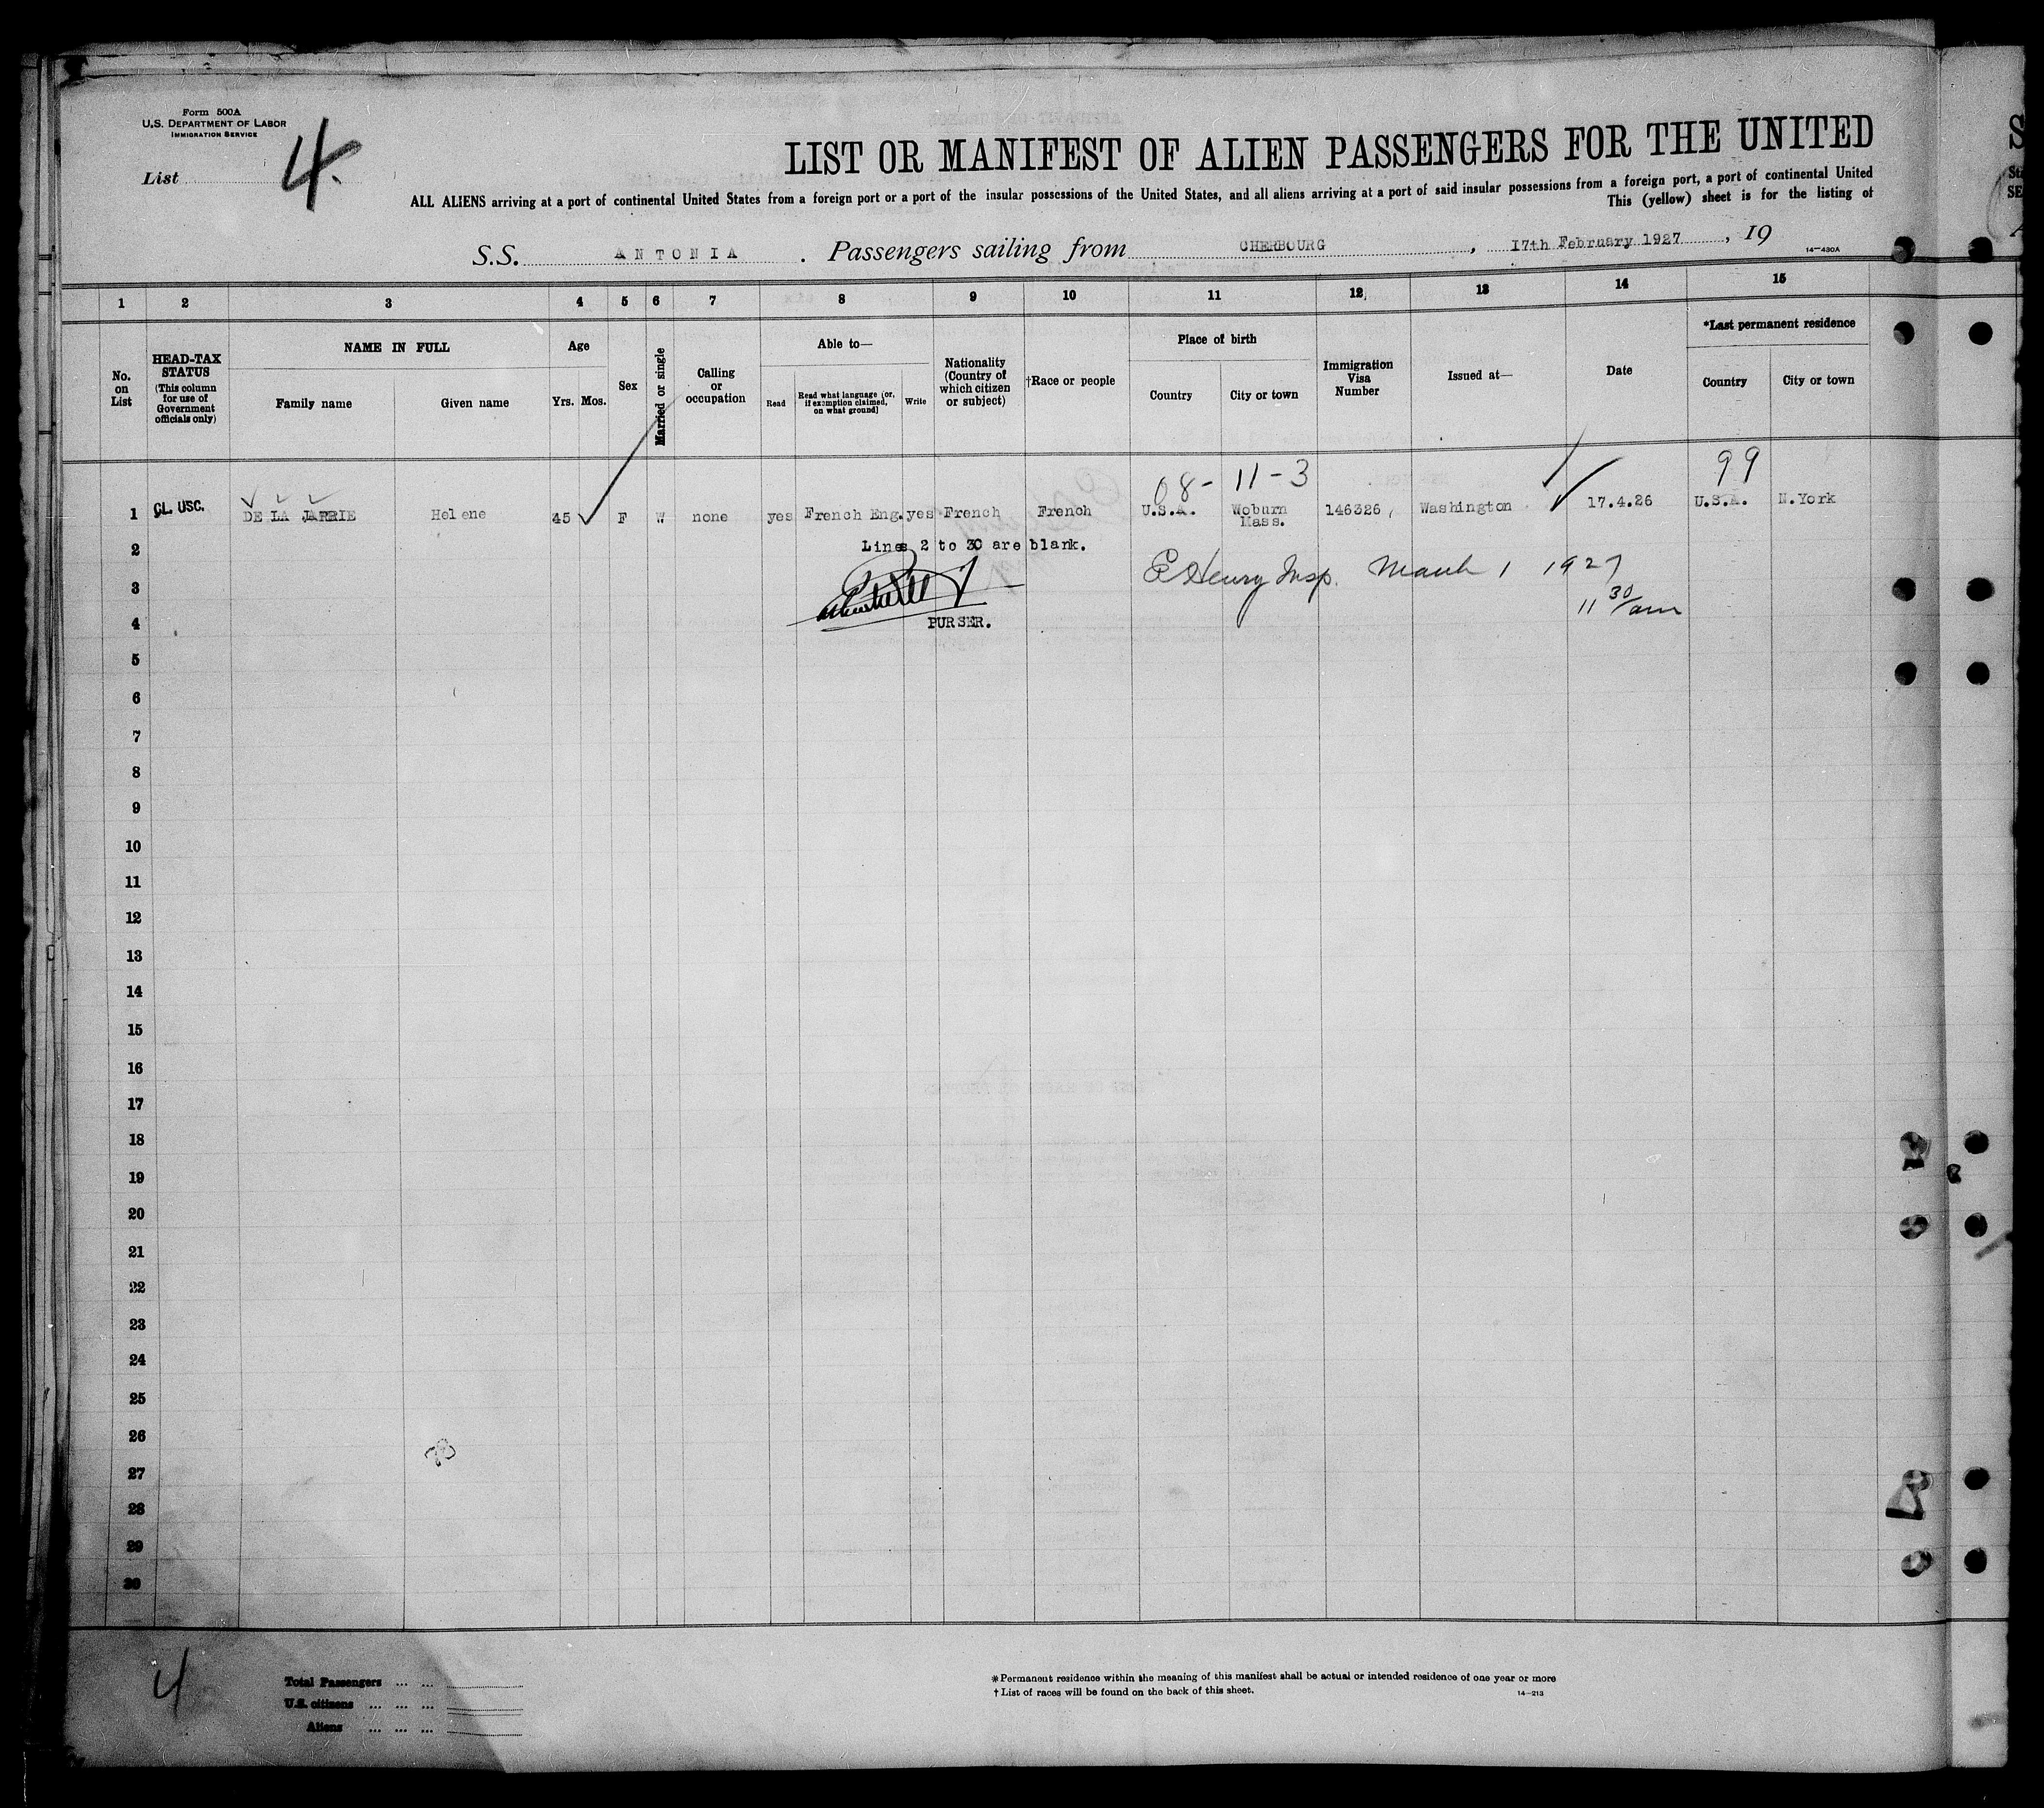 Form 500A
U.S. DEPARTMENT OF LABOR
IMMIGRATION SERVICE
List 4.
LIST OR MANIFEST OF ALIEN PASSENGERS FOR THE UNITED
ALL ALIENS arriving at a port of continental United States from a foreign port or a port of the insular possessions of the United States, and all aliens arriving at a port of said insular possessions from a foreign port, a port of continental United
This (yellow) sheet is for the listing of
S.S. ANTONIA . Passengers sailing from CHERBOURG , 17th February 1927 , 19
14—430A
1 2 3 4 5 6 7 8 9 10 11 12 13 14 15
No. on List
HEAD-TAX STATUS (This column for use of Government officials only)
NAME IN FULL
Family name Given name
Age
Yrs. Mos.
Sex
Married or single
Calling or occupation
Able to—
Read Read what language (or, if exemption claimed, on what ground) Write
Nationality (Country of which citizen or subject)
†Race or people
Place of birth
Country City or town
Immigration Visa Number
Issued at—
Date
*Last permanent residence
Country City or town
08- 11-3 99
1 CL. USC. DE LA JARRIE Helene 45 F W none yes French Eng. yes French French U.S.A. Woburn Mass. 146326, Washington 17.4.26 U.S.A. N.York
2 Lines 2 to 30 are blank.
3 E Henry Insp. March 1 1927
11 30/am
4 PURSER.
5
6
7
8
9
10
11
12
13
14
15
16
17
18
19
20
21
22
23
24
25
26
27
28
29
30
4
Total Passengers ... ...
U.S. citizens ... ... ...
Aliens ... ... ...
*Permanent residence within the meaning of this manifest shall be actual or intended residence of one year or more
†List of races will be found on the back of this sheet. 14—213